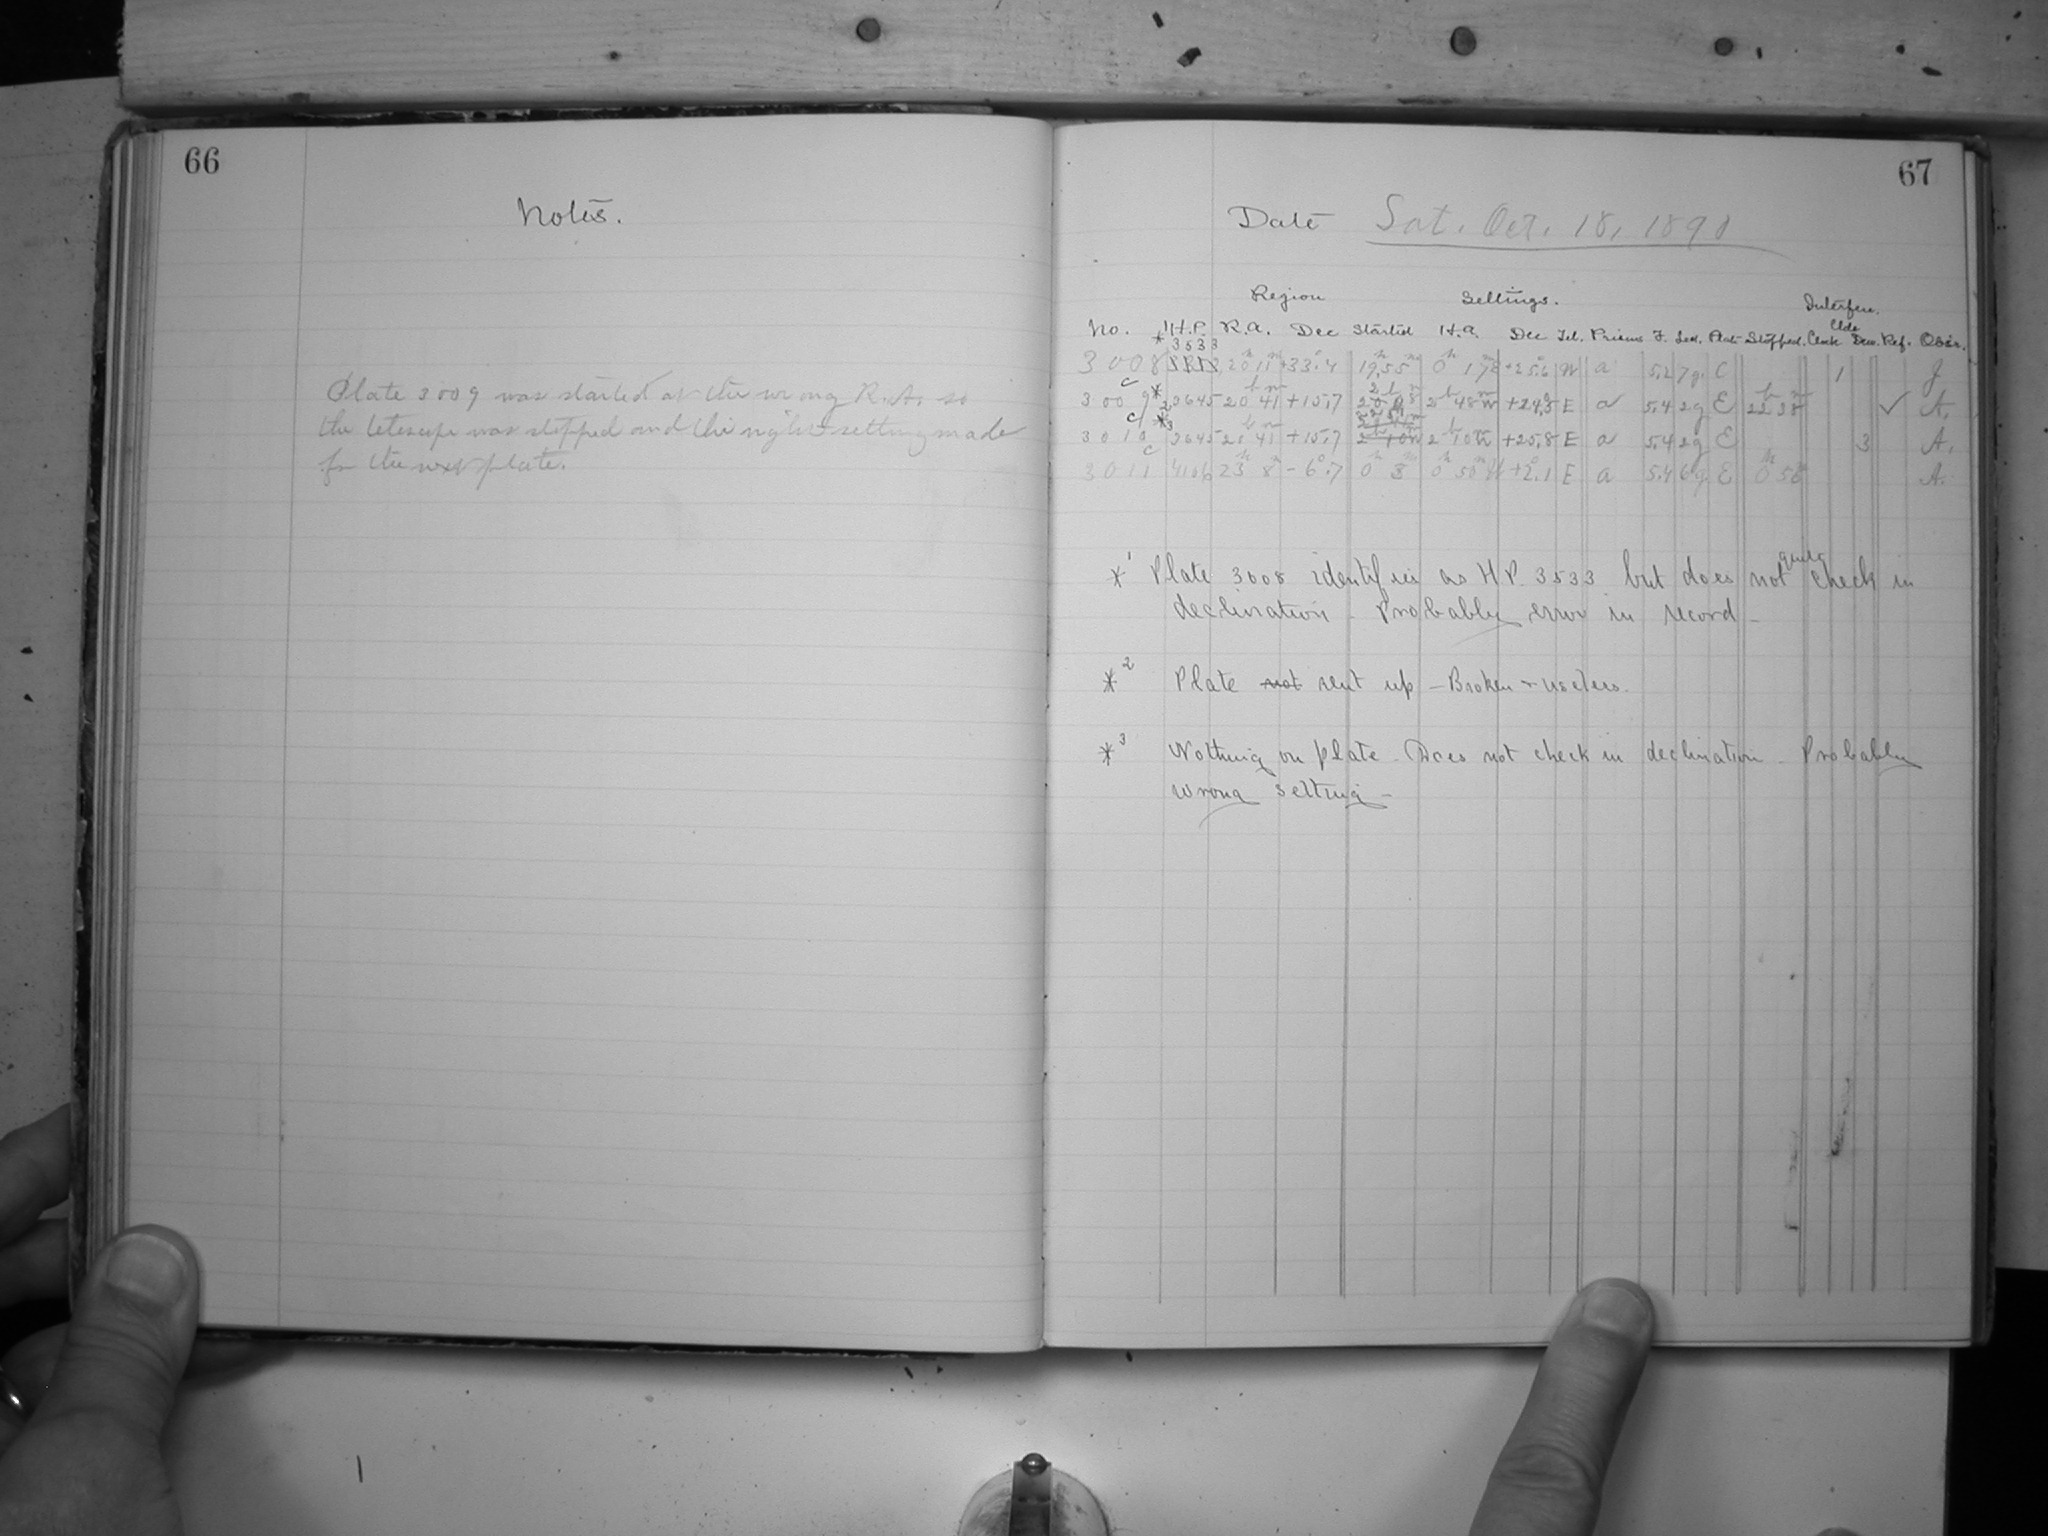 66
Notes.
Plate 3009 was started at the wrong R.A. so
the telescope was stopped and the right setting made
for the next plate.
67
Date Sat. Oct. 18, 1890
Region Settings. Interfere.
No. H.P. R.A. Dec Started H.A. Dec Tel. Prisms F. Sec. Plate Stopped. Clock Clds Dew. Ref. Obsr.
*1 3533
3008 20 11 +33.4 19 55 0 17 +25.6 W a 5.2 7g. C 1 J
3009 *2 3645 20 41 +15.7 2 48 +24.5 E a 5.4 2g E 22 38 ✓ A.
3010 *3 3645 20 41 +15.7 2 10 +25.8 E a 5.4 2g E 3 A.
3011 4106 23 8 -6.7 0 3 0 50 W +2.1 E a 5.4 6g. E 0 58 A.
*1 Plate 3008 identifies as H.P. 3533 but does not quite check in
declination - Probably error in record -
*2 Plate not sent up - Broken + useless.
*3 Nothing on plate - Does not check in declination - Probably
wrong setting -